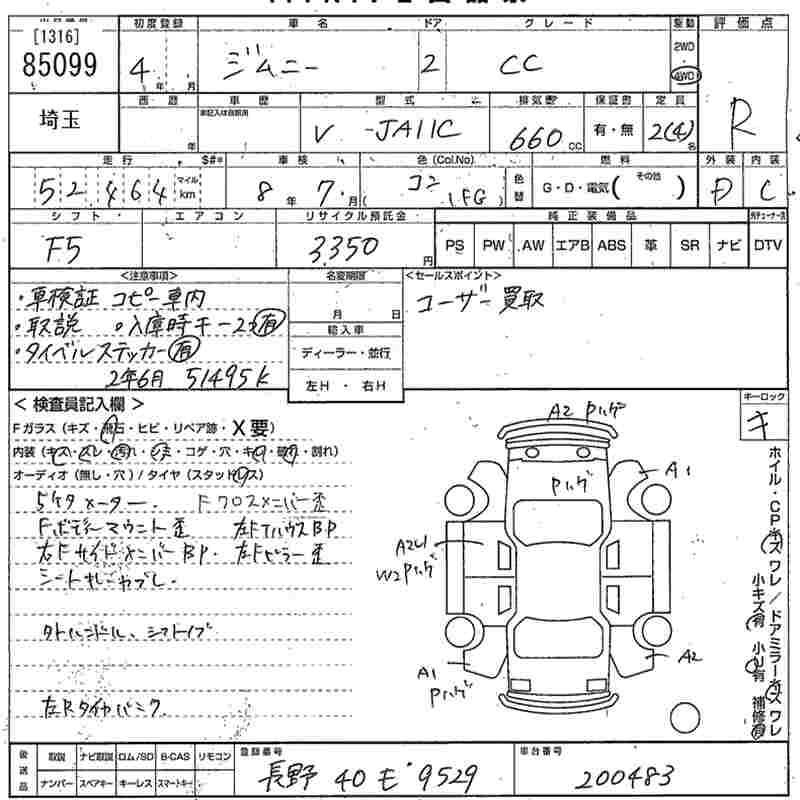 出品番号 初度登録 車名 ドア グレード 駆動 評価点
[1316] 85099 4年 月 ジムニー 2 CC 2WD 4WD R
埼玉 西暦 車歴 型式 排気量 保証書 定員
年 車記入は自家用 V-JA11C 660cc 有・無 2(4)名
走行 $#* 車検 色(Col.No) 色替 燃料 外装 内装
52464 マイル km 8年7月 コン (FG) G・D・電気( その他 ) D C
シフト エアコン リサイクル預託金 純正装備品
F5 3350円 PS PW AW エアB ABS 革 SR ナビ DTV
<注意事項> 名変期限 <セールスポイント>
・車検証 コピー車内 月 日 ユーザー買取
・取説 ○入庫時キー2ヶ有 輸入車
・タイベルステッカー有 ディーラー・並行
2年6月 51495k 左H・右H
< 検査員記入欄 > キーロック
Fガラス(キズ・飛石・ヒビ・リペア跡・X要) キ
内装(キズ・スレ・汚れ・ ・コゲ・穴・キ ・破れ・割れ)
オーディオ(無し・穴)/タイヤ(スタッドレス)
5ケタメーター. Fクロスメンバー歪
Fボディーマウント歪 左FTハウスBP
右FサイドメンバーBP. 左Fピラー歪
シートオレコゲヤブレ.
タトハンドル、シフトノブ
左Rタイヤパンク.
A2 Pハゲ
A1
Pハゲ
A2U1
W2Pハゲ
A1
Pハゲ
A2
ホイル・CPキズワレ/ドアミラーキズワレ
小キズ有 小U有 補修有
後送品 取説 ナビ取説 ロム/SD B-CAS リモコン 登録番号 車台番号
ナンバー スペアキー キーレス スマートキー 長野 40 モ 9529 200483